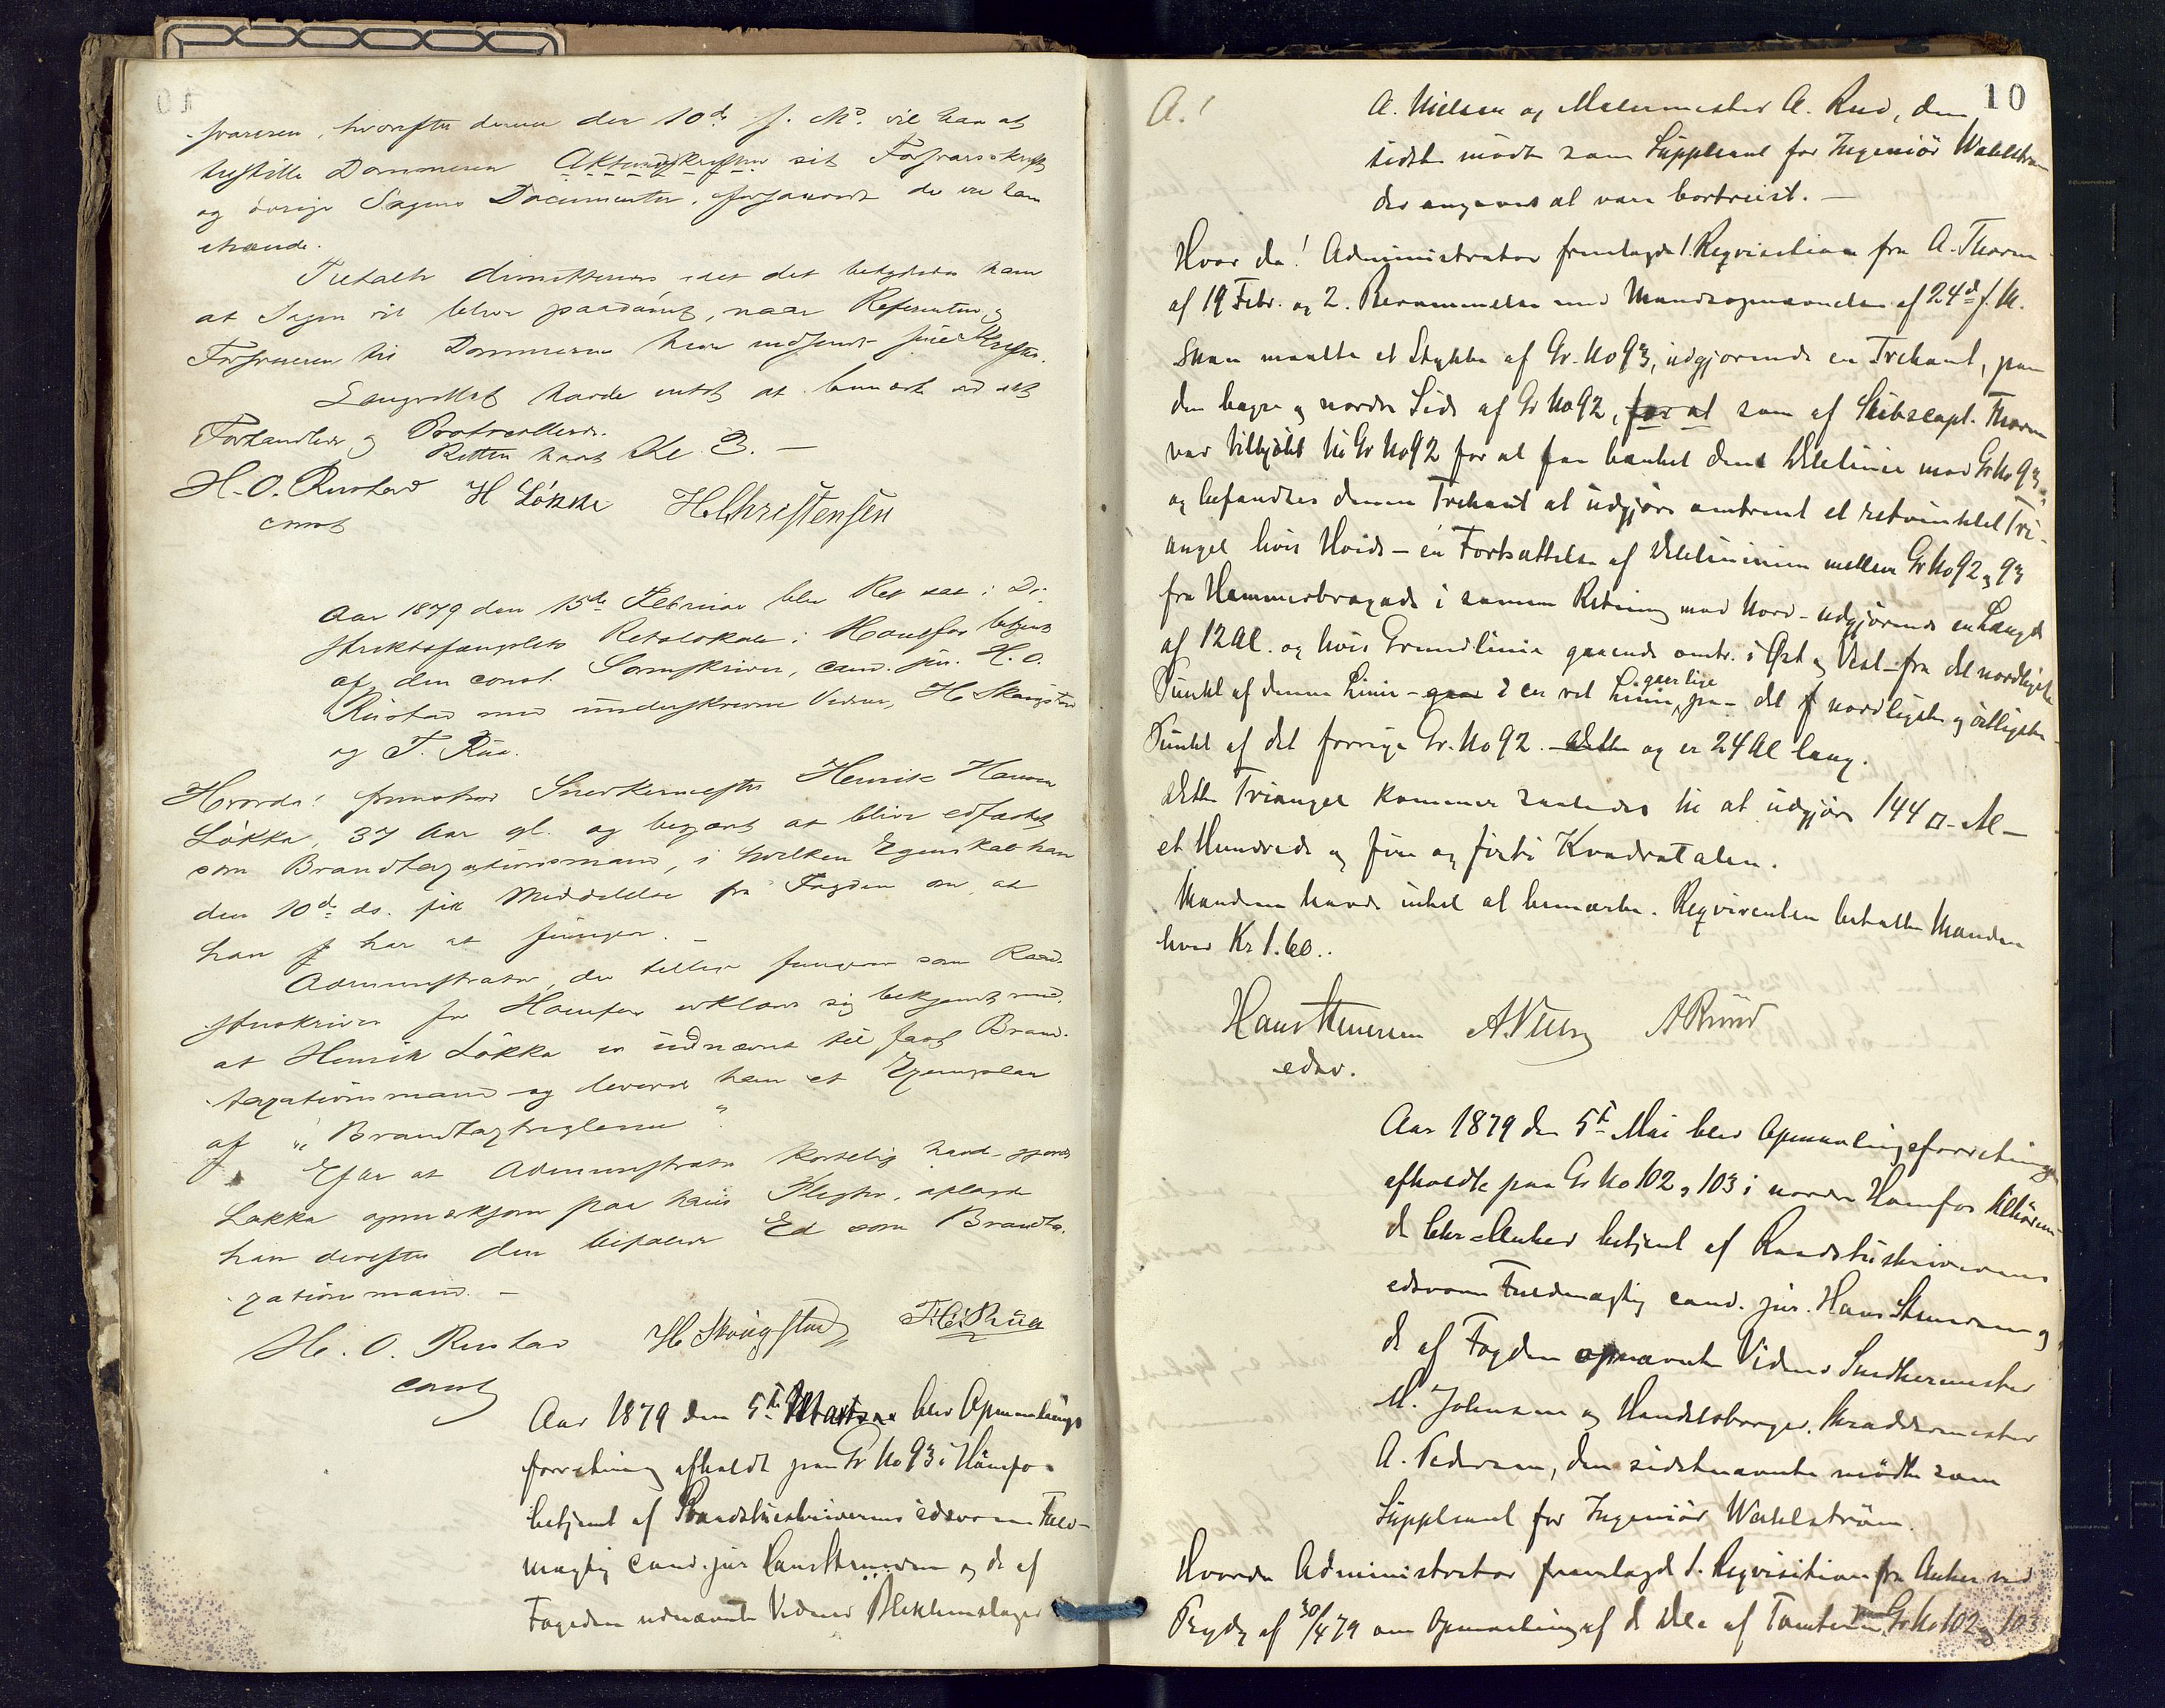 svareren, hvorefter denne den 10de f. Md. vil have at
tilstille Dommeren Aktudskriften sit Forsvarsskrift
og övrige Sagens Documenter, forsaavidt de ere ham
ihænde.
Tiltalte dimitteredes, idet det betydedes ham
at Sagen vil blive paadömt, naar Referenten og
Forsvareren til Dommeren have indsendt sine Skrifter.
Laugrettet havde intet at bemærke ved det
Forhandlede og Protocollerede.
Retten hævet Kl. 2. —
H. O. Rustad H Lökke HChristensen
const
Aar 1879 den 15de Februar blev Ret sat i Di-
striktsfængslets Retslokale i Hönefos betjent
af den const. Sorenskriver, cand. jur. H. O.
Rustad med underskrevne Vidner, H Skougstad
og T. Rua.
Hvorda! fremstod Snedkermester Henrik Hansen
Lökka, 37 Aar gl. og begjært at blive edfæstet
som Brandtaxationsmand, i hvilken Egenskab han
den 10de ds. fik Meddelelse fra Fogden om, at
han har at fungere. —
Administrator, der tillige fungerer som Raad-
stueskriver for Hönefos erklærede sig bekjendt med,
at Henrik Lökka er udnævnt til fast Brand-
taxationsmand og leverede ham et Exemplar
af "Brandtaxtreglerne".
Efter at Administrator kortelig havde gjort
Lökka opmærksom paa hans Pligter, aflagde
han derefter den befalede Ed som Brandta-
xationsmand. —
H. O. Rustad H Skougstad T. H. Rua
const
Aar 1879 den 5te Marts blev Opmaalings
forretning afholdt paa Gr No 93 i Hönefos
betjent af Raadstueskriverens edsvorne Fuld-
mægtig cand. jur Hans and de af
Fogden udnævnte Vidner Blikkenslager
10
A.!
A. Nielsen og Malermester A. Rud, den
sidste mödte som Suppleant for Ingeniör Wahlström
der angaves at være bortreist. —
Hvor da! Administrator fremlagde 1. Reqvisition fra A. Thorne
af 19 Febr. og 2. Berammelse med Mandsopnævnelse af 24de f. M.
Man maalte et Stykke af Gr. No 93, udgjörende en Trekant, paa
den bagre og nordre Side af Gr No 92, for at som af Skibscapt. Thorne
var tilkjöbt til Gr No 92 for at faa bænket dens Delelinie mod Gr No 93,
og befandtes denne Trekant at udgjöre omtrent et retvinklet Tri-
angel hvis Höide — en Fortsættelse af Delelinien mellem Gr No 92 og 93
fra Hammersbrogade i samme Retning mod Nord — udgjörende en Længde
af 12 Al. og hvis Grundlinie gaaende omtr. i Öst og Vest — fra det nordligste
Punkt af denne Linie — gaar i en ret Linie paa — det nordligste og östligste
Punkt af det forrige Gr. No 92. — Dette og er 24 Al lang.
Dette Triangel kommer saaledes til at udgjöre 144 □ Al —
et Hundrede og fire og förti Kvadratalen.
Mændene havde intet at bemærke. Reqvirenten betalte Mændene
hver Kr 1.60.
Hans A Nielsen A Ruud
edsv.
Aar 1879 den 5te Mai blev Opmaalingsforretning
afholdte paa Gr No 102 og 103 i nordre Hönefos tilhören-
de Anker betjent af Raadstueskriverens
edsvorne Fuldmægtig cand. jur. Hans og
de af Fogden opnævnte Vidner Snedkermester
M. Johnsen og Handelsborger, Skræddermester
A. Pedersen, den sidstnævnte mödte som
Suppleant for Ingeniör Wahlström.
Hvorda Administrator fremlagde 1. Reqvisition fra Anker ved
af 30/4 79 om Opmaaling af de Dele af Tomterne Gr No 102 og 103